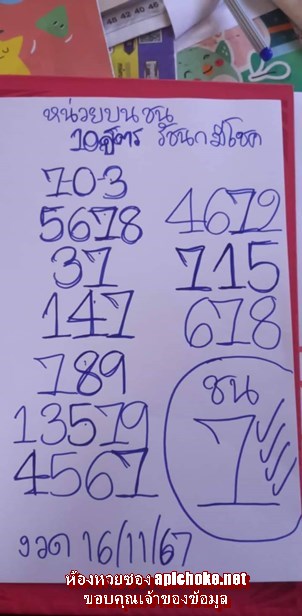 หน่วยบน ชน
10สูตร รัชนก มีโชค
703
5678
37
147
789
13579
4567
4672
715
678
ชน
7
งวด 16/11/67
ห้องหวยซอง aplchoke.net
ขอบคุณเจ้าของข้อมูล